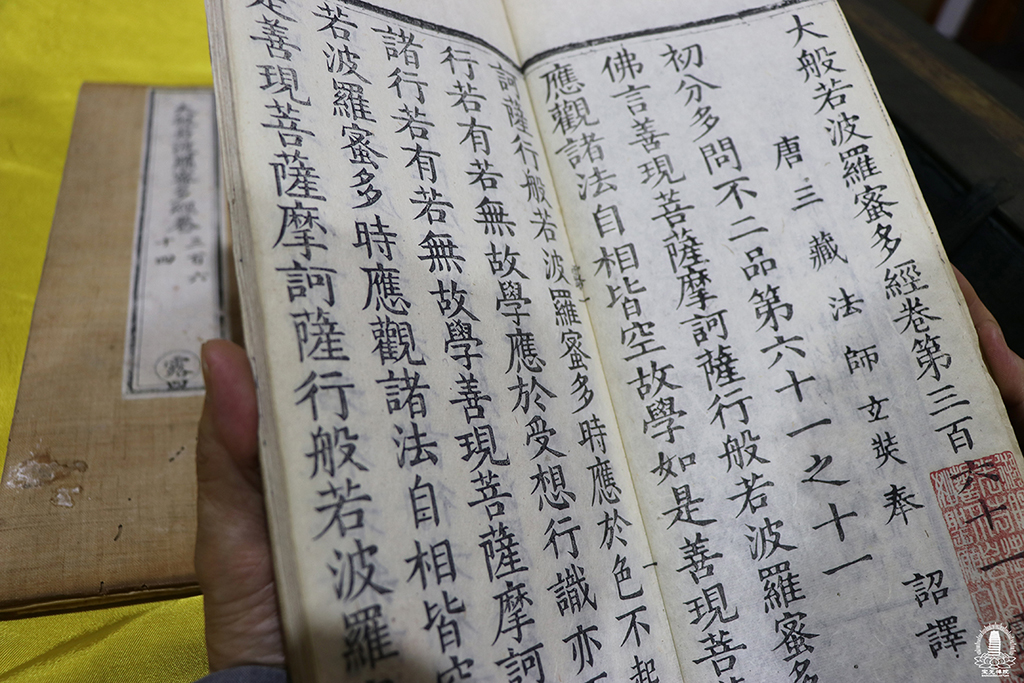 大般若波羅蜜多經卷第三百六十一
唐三藏法師玄奘奉 詔譯
初分多問不二品第六十一之十一
佛言善現菩薩摩訶薩行般若波羅蜜多
應觀諸法自相皆空故學如是善現菩
訶薩行般若波羅蜜多時應於色不起
行若有若無故學應於受想行識亦不
諸行若有若無故學善現菩薩摩訶
若波羅蜜多時應觀諸法自相皆空
是善現菩薩摩訶薩行般若波羅
大般若波羅蜜多經卷三百六十四
露四